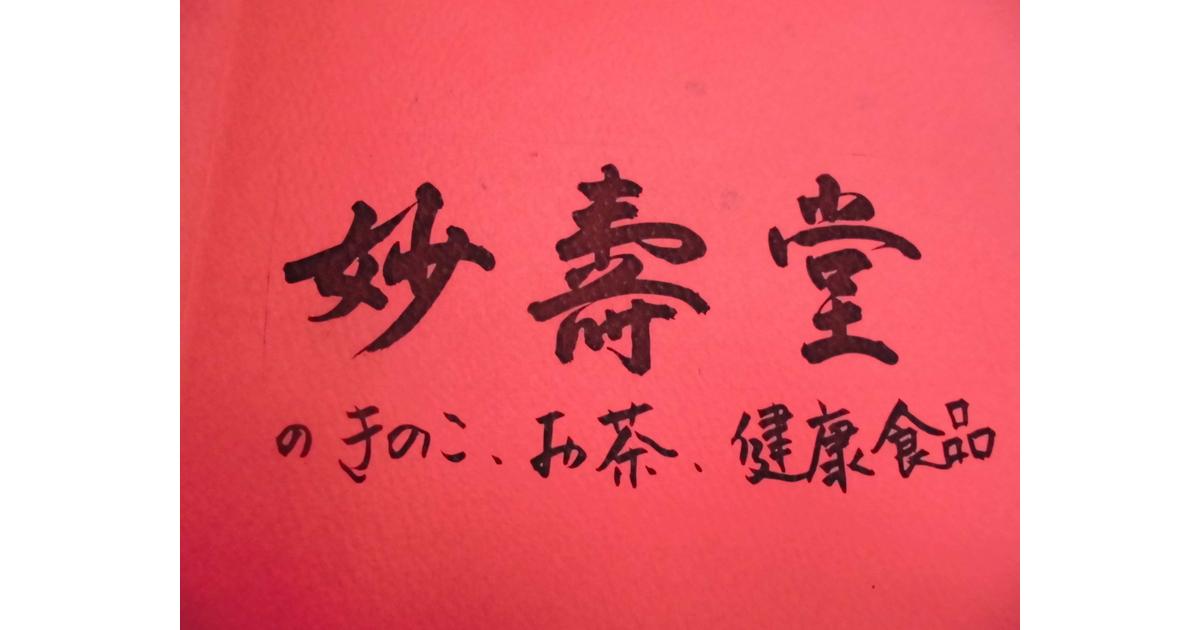 妙壽堂
のきのこ、お茶、健康食品